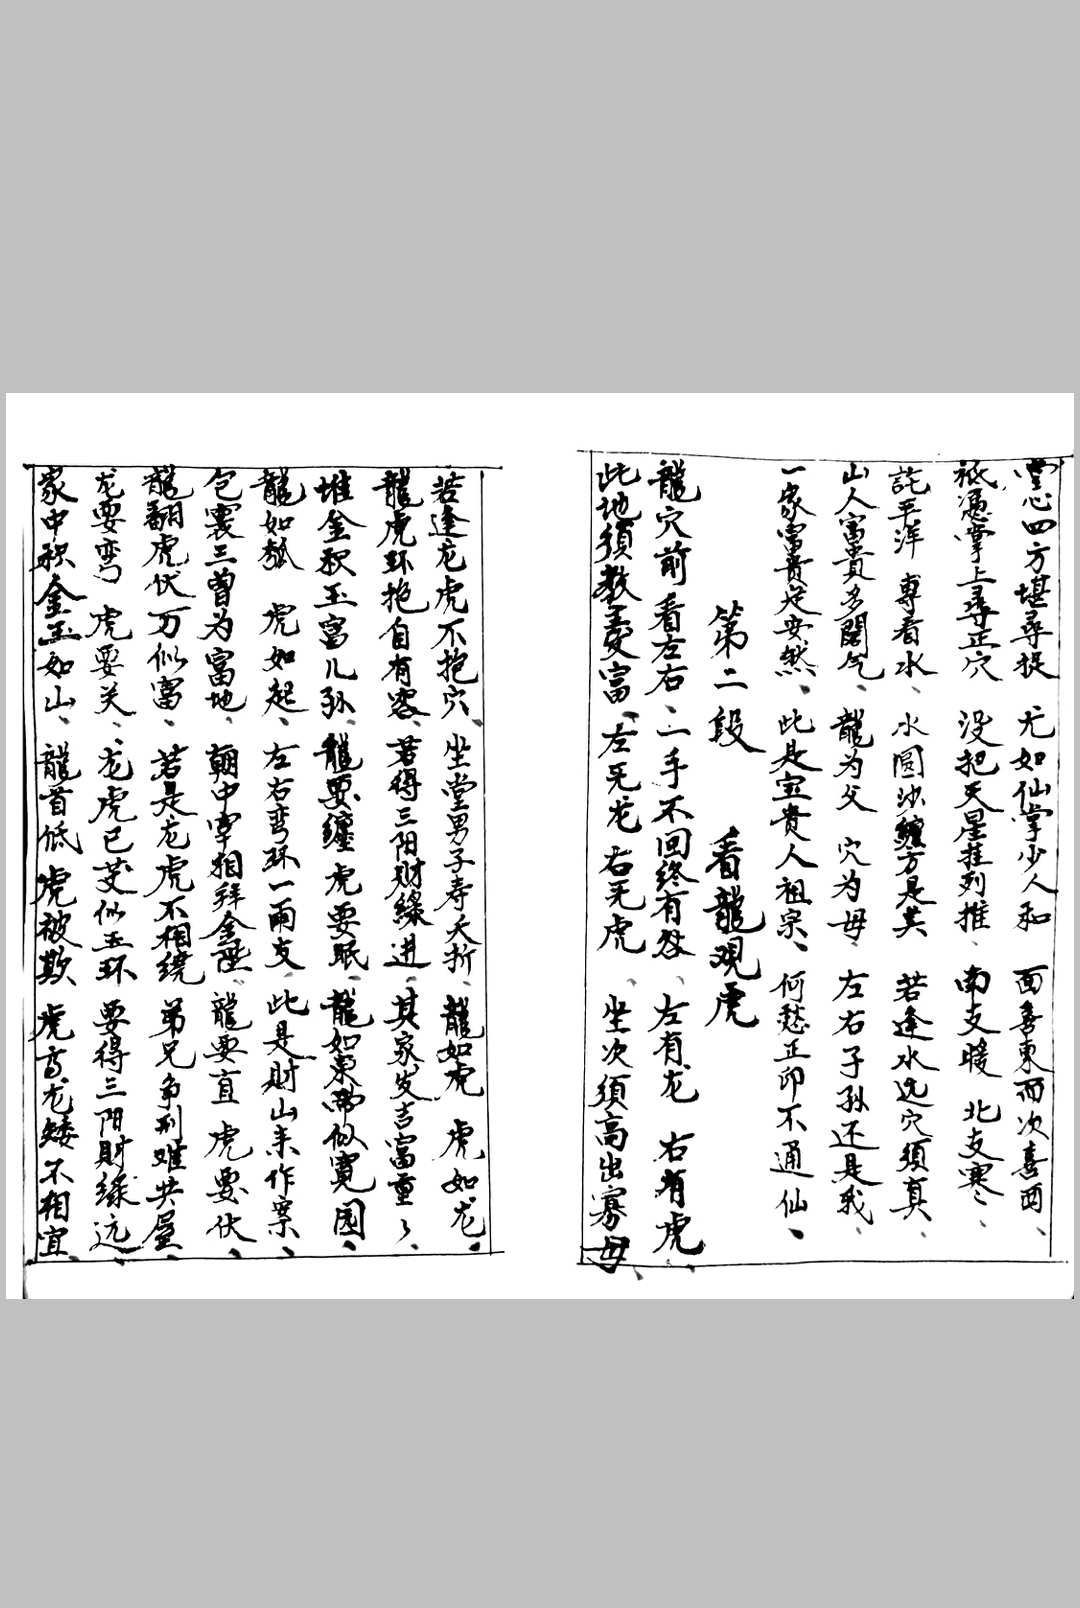 掌心四方堪尋捉 尤如仙掌少人和 面善東西次喜西、
祗憑掌上尋正穴 没把天星挂列推、南支暖 北支寒、
詫平洋 專看水、水圆沙纏方是美 若逢水远穴須真、
山人富貴多閣气、龍为父 穴为母、左右子孙还是我、
一家富貴定安然、此是宝贵人祖宗、何愁正印不通仙、
第二段 看龍观虎
龍穴前看左右、二手不回终有咎、左有龙 右有虎、
此地須教姜更富、左无龙右无虎、坐次須高出寡母、
若逢龙虎不抱穴、坐堂男子寿夭折、龍如虎 虎如龙、
龍虎环抱自有容、若得三阳财緣进、其家发吉富重々、
堆金积玉富儿孙、龍要纏 虎要眠、龍如束帶似寬园、
龍如瓠 虎如起、左右弯环一兩支、此是財山来作案、
包裹三曽为富地、朝中宰相拜金陛、龍要直 虎要伏、
龍翻虎伏万似富、若是龙虎不相绕 弟兄争利难共屋、
龙要弯 虎要关、龙虎已交似玉环 要得三阳財緣远、
家中积金玉如山、龍首低 虎被欺 虎高龙矮不相宜、